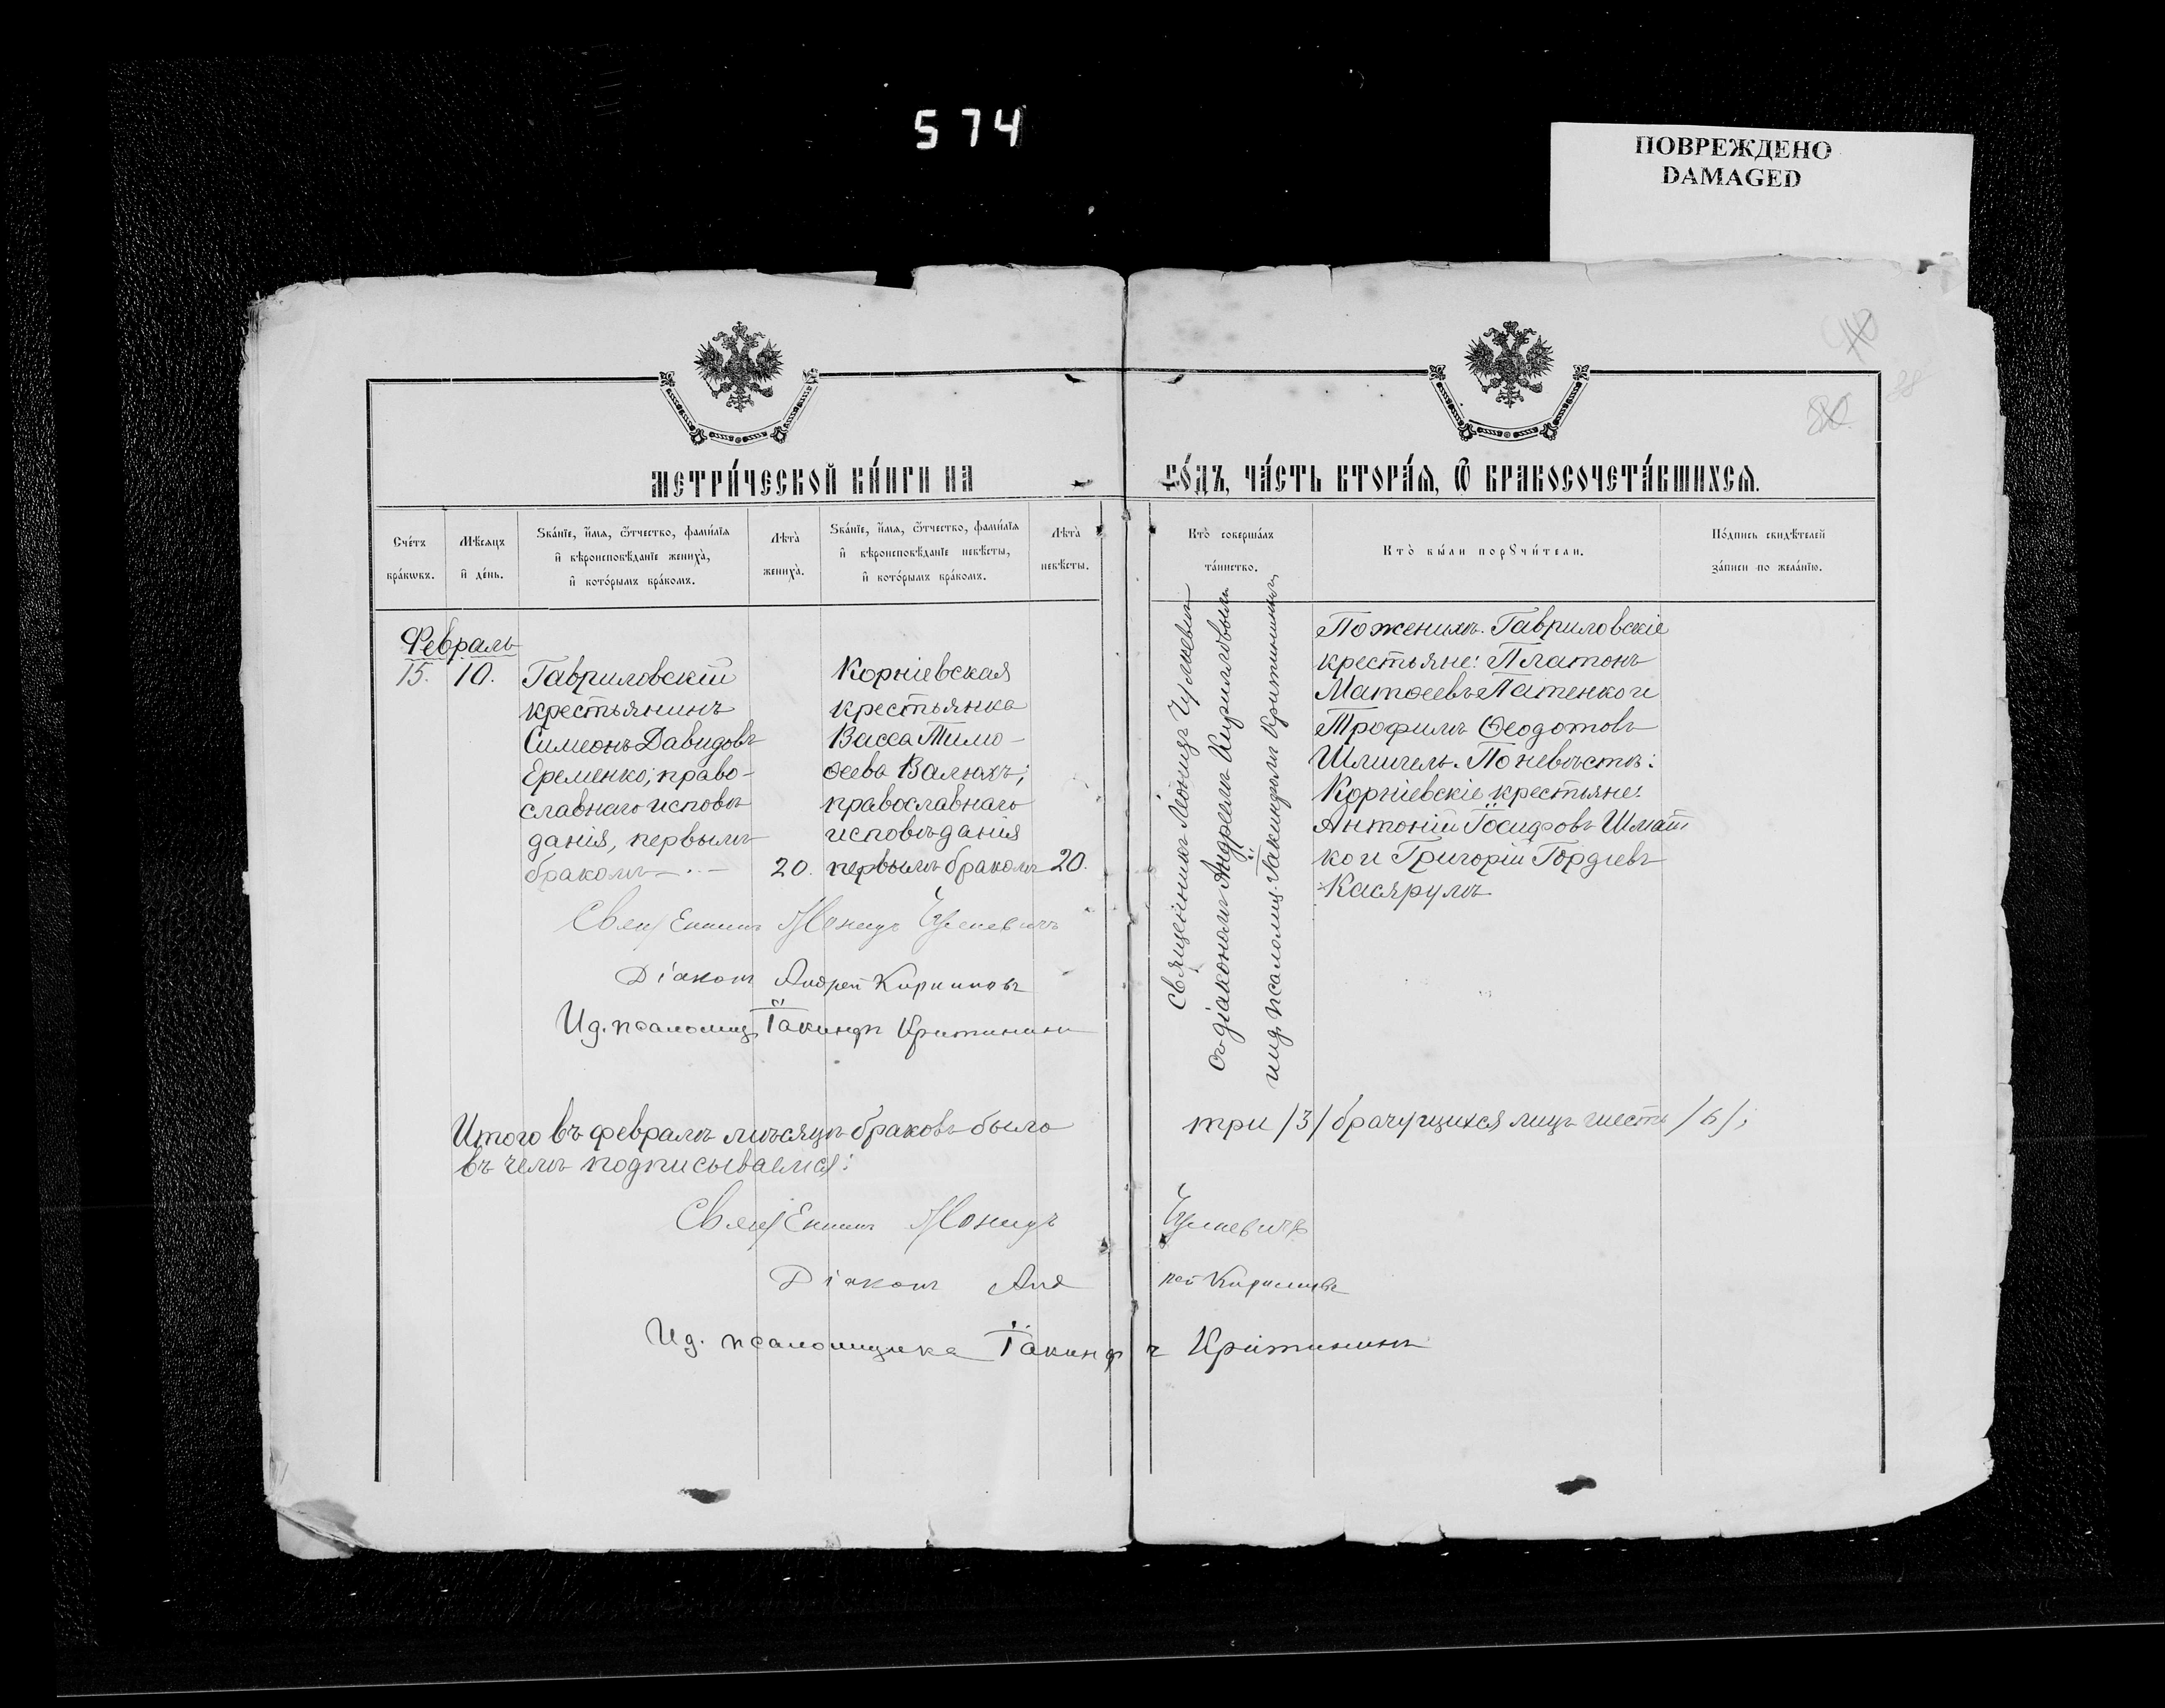 574
ПОВРЕЖДЕНО
DAMAGED
МЕТРИ́ЧЕСКОЙ КНИ́ГИ НА
ГО́ДЪ, ЧА́СТЬ ВТОРА́Я, Ѿ БРАКОСОЧЕТА́ВШИХСЯ.
Сче́тъ
бра́ковъ.
Мѣсяцъ
и҆ де́нь.
Ѕва́нїе, и҆́мя, ѻ҆́тчество, фами́лїя
и҆ вѣроисповѣ́данїе жениха̀,
и҆ кото́рымъ бра́комъ.
Лѣта̀
жениха̀.
Ѕва́нїе, и҆́мя, ѻ҆́тчество, фами́лїя
и҆ вѣроисповѣ́данїе невѣ́сты,
и҆ кото́рымъ бра́комъ.
Лѣта̀
невѣ́сты.
Кто̀ соверша́лъ
та́инство.
Кто̀ бы́ли порꙋчи́тели.
По́дпись свидѣ́телей
за́писи по жела́нїю.
Февраль
15. 10.
Гавриловскій
крестьянинъ
Симеонъ Давидовъ
Еременко; право-
славнаго исповѣ
данія, первымъ
бракомъ
20.
Корніевская
крестьянка
Васса Тимо-
ѳеева Валюхъ;
православнаго
исповѣданія
первымъ бракомъ
20.
Священникъ Леонидъ
съ діакономъ Андреемъ Кирилловымъ
и и.д. псаломщ. Іакинѳомъ Критининым
По женихѣ: Гавриловскіе
крестьяне: Платонъ
Матѳеевъ Патенко и
Трофимъ Ѳеодотовъ
Шлигель. По невѣстѣ:
Корніевскіе крестьяне:
Антоній Іосифовъ Шмат
ко и Григорій Гордіевъ
Касярумъ
Священникъ Леонидъ
Діаконъ Андрей Кирилловъ
И.д. псаломщ. Іакинфъ Критининъ
Итого въ февралѣ мѣсяцѣ браковъ было
три /3/ брачущихся лицъ шесть /6/;
въ чемъ подписываемся:
Священникъ Леонидъ
Діаконъ Андрей Кирилловъ
И.д. псаломщика Іакинфъ Критининъ